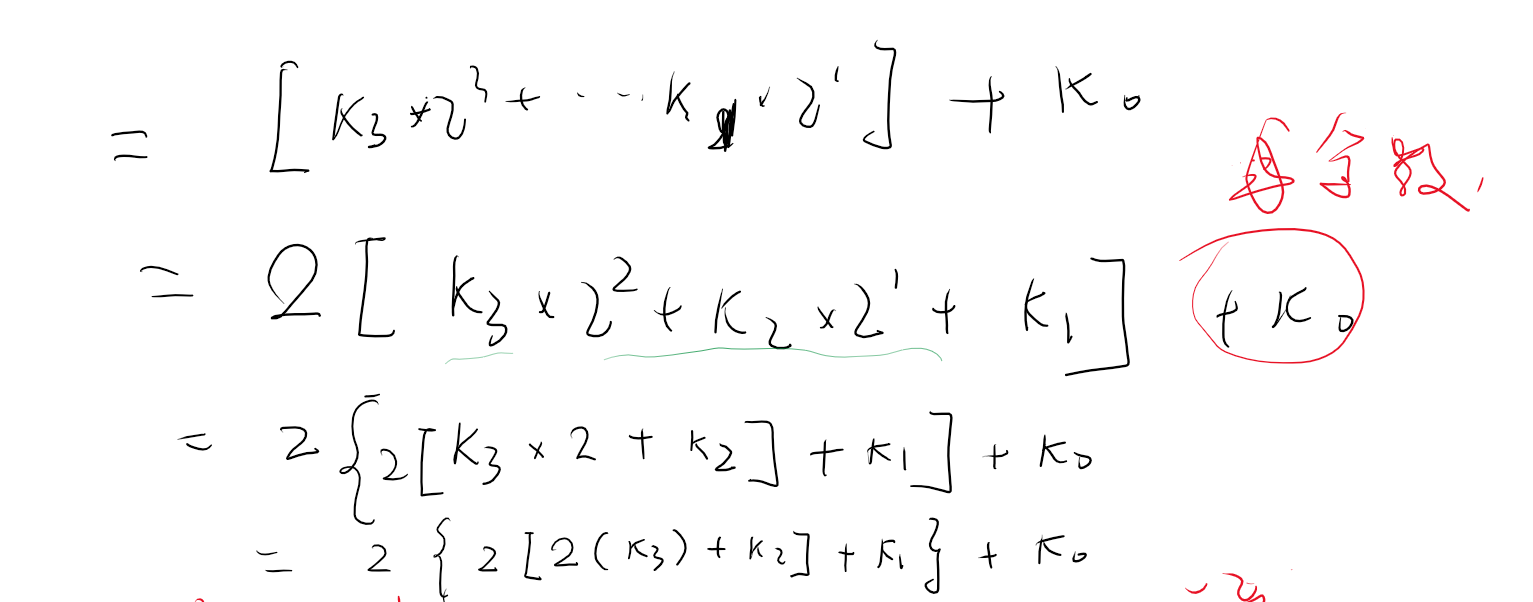 = [ K₃ × 2³ + ... K × 2¹ ] + K₀
再余数
= 2 [ K₃ × 2² + K₂ × 2¹ + K₁ ] + K₀
= 2 { 2 [ K₃ × 2 + K₂ ] + K₁ ] + K₀
= 2 { 2 [ 2 ( K₃ ) + K₂ ] + K₁ } + K₀